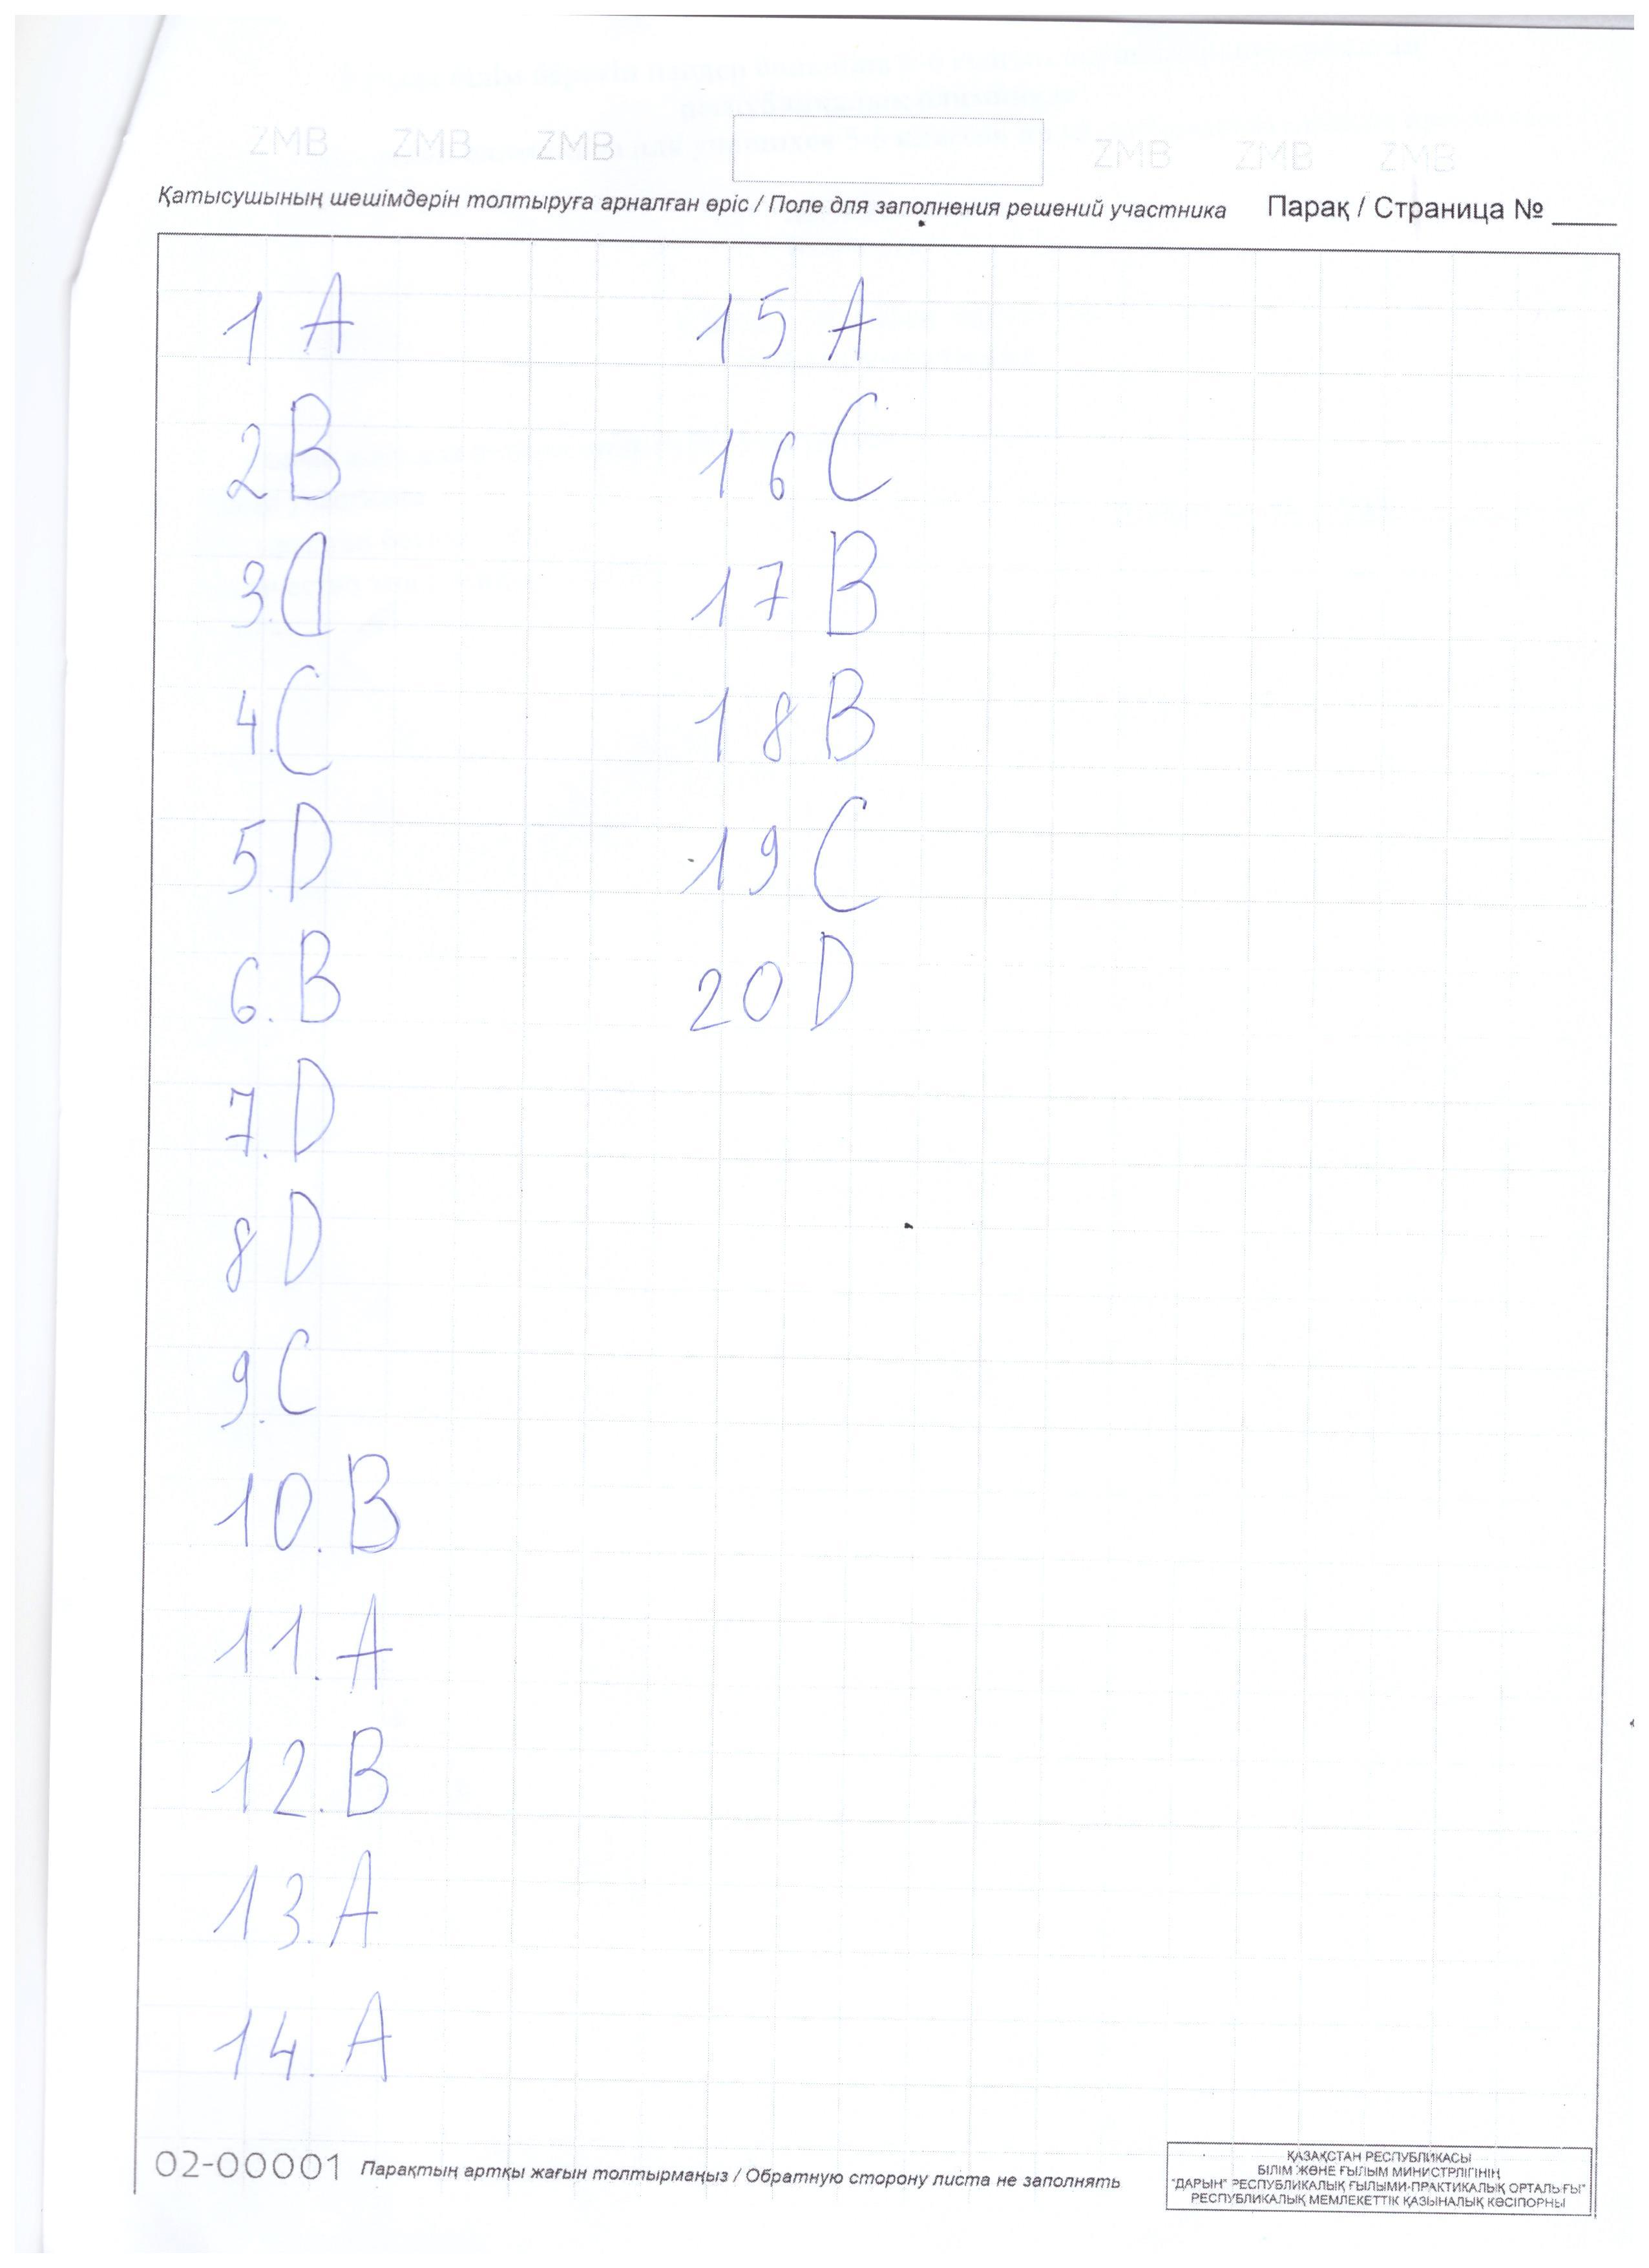 ZMB ZMB ZMB ZMB ZMB ZMB
Қатысушының шешімдерін толтыруға арналған өріс / Поле для заполнения решений участника Парақ / Страница № ____
1 A
2 B
3. D
4. C
5. D
6. B
7. D
8 D
9. C
10. B
11. A
12. B
13. A
14. A
15 A
16 C
17 B
18 B
19 C
20 D
02-00001 Парақтың артқы жағын толтырмаңыз / Обратную сторону листа не заполнять
ҚАЗАҚСТАН РЕСПУБЛИКАСЫ
БІЛІМ ЖӘНЕ ҒЫЛЫМ МИНИСТРЛІГІНІҢ
"ДАРЫН" РЕСПУБЛИКАЛЫҚ ҒЫЛЫМИ-ПРАКТИКАЛЫҚ ОРТАЛЫҒЫ"
РЕСПУБЛИКАЛЫҚ МЕМЛЕКЕТТІК ҚАЗЫНАЛЫҚ КӘСІПОРНЫ